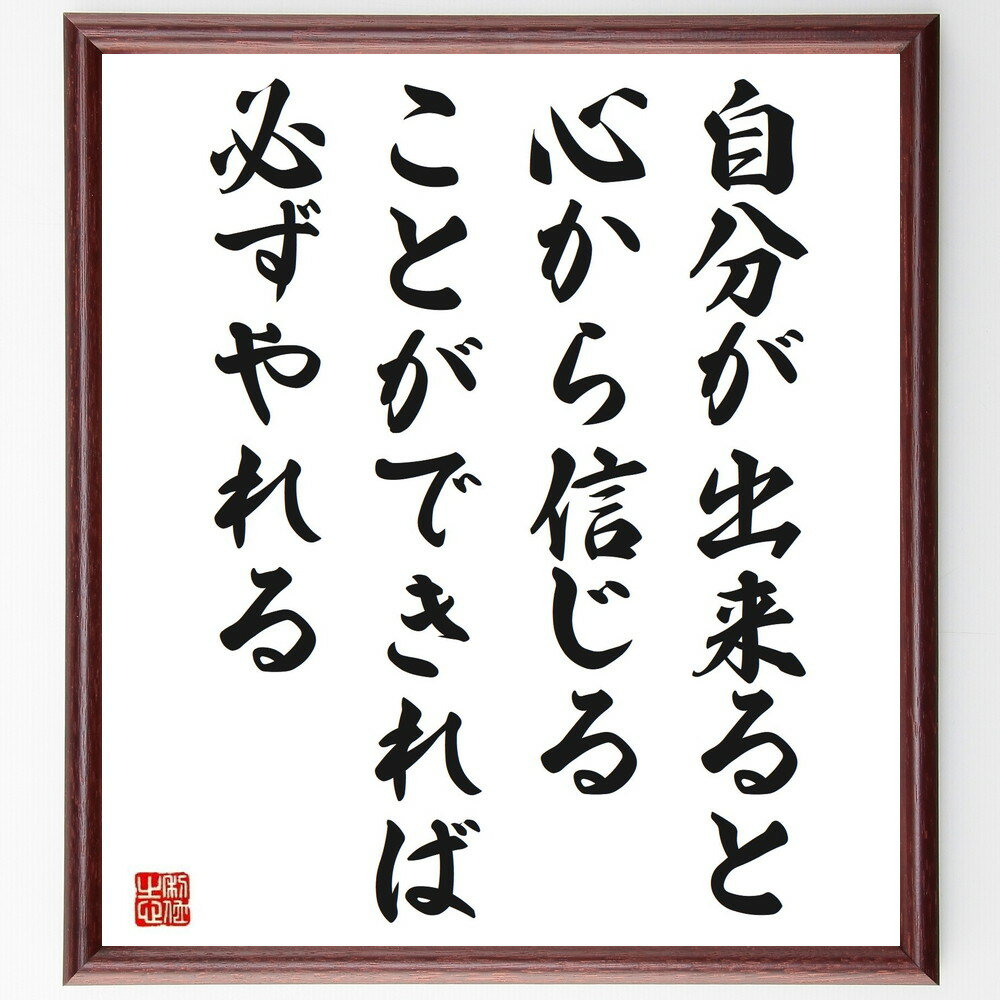 自分が出来ると
心から信じる
ことができれば
必ずやれる